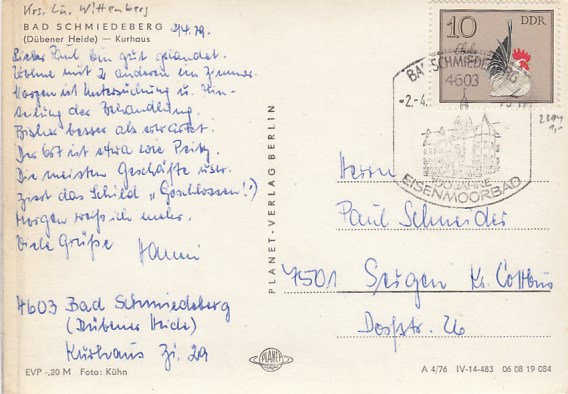 Krs. Lu. Wittenberg
BAD SCHMIEDEBERG
2/4.79.
(Dübener Heide) — Kurhaus
Lieber Paul bin gut gelandet.
Wohne mit 2 anderen ein Zimmer.
Morgen ist Untersuchung u. Ein-
stellung der Behandlung.
Bisher besser als erwartet.
Der Ort ist etwa wie Peitz.
Die meisten Geschäfte usw.
Ziert das Schild „Geschlossen!")
Morgen weiß ich mehr.
Viele Grüße
Hanni
4603 Bad Schmiedeberg
(Dübener Heide)
Kurhaus Zi. 29
EVP -,20 M Foto: Kühn
PLANET-VERLAG BERLIN
PLANET
10
DDR
BAD SCHMIEDEBERG
4603
-2.-4.
100 JAHRE
EISENMOORBAD
Herrn
Paul Schneider
7501 Kr. Cottbus
Dorfstr. 26
A 4/76 IV-14-483 06 08 19 084